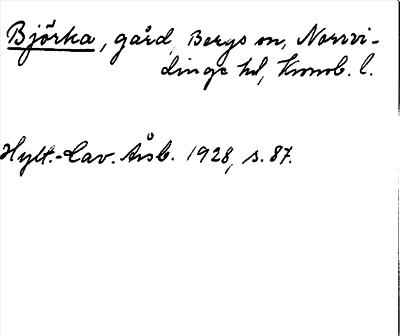 Björka, gård, Bergs sn, Norrvi-
dinge hd, Kronob. l.
Hylt.-Cav. Årsb. 1928, s. 87.